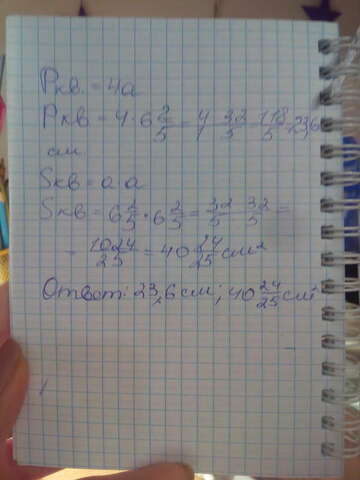 Pкв. = 4a
Pкв = 4 · 6 2/5 = 4/1 · 32/5 = 118/5 = 23,6
см
Sкв = a · a
Sкв = 6 2/5 · 6 2/5 = 32/5 · 32/5 =
= 1024/25 = 40 24/25 см²
Ответ: 23,6 см; 40 24/25 см²